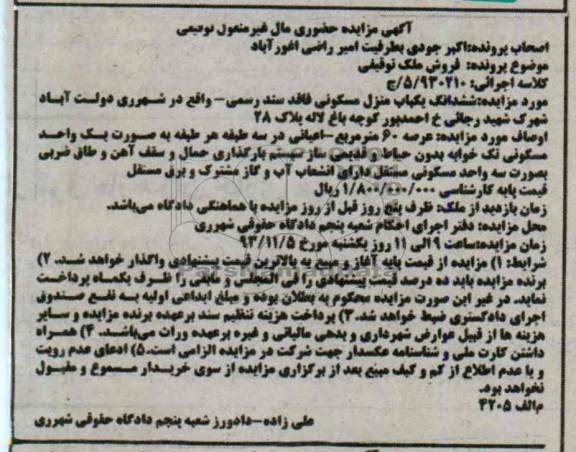 آگهی مزایده حضوری مال غیرمنقول توقیفی
اصحاب پرونده:اکبر جودی بطرفیت امیر راضی اغورآباد
موضوع پرونده: فروش ملک توقیفی
کلاسه اجرائی: ۵/۹۳۰۲۱۰/ج
مورد مزایده:ششدانگ یکباب منزل مسکونی فاقد سند رسمی- واقع در شهرری دولت آباد
شهرک شهید رجائی خ احمدپور کوچه باغ لاله پلاک ۲۸
اوصاف مورد مزایده: عرصه ۶۰ مترمربع -اعیانی در سه طبقه هر طبقه به صورت یک واحد
مسکونی تک خوابه بدون حیاط و قدیمی ساز سیستم بارگذاری حمال و سقف آهن و طاق ضربی
بصورت سه واحد مسکونی مستقل دارای انشعاب آب و گاز مشترک و برق مستقل
قیمت پایه کارشناسی ۱/۸۰۰/۰۰۰/۰۰۰ ریال
زمان بازدید از ملک: ظرف پنج روز قبل از روز مزایده با هماهنگی دادگاه می‌باشد.
محل مزایده: دفتر اجرای احکام شعبه پنجم دادگاه حقوقی شهرری
زمان مزایده:ساعت ۹ الی ۱۱ روز یکشنبه مورخ ۹۳/۱۱/۵
شرایط: ۱) مزایده از قیمت پایه آغاز و مبیع به بالاترین قیمت پیشنهادی واگذار خواهد شد. ۲)
برنده مزایده باید ده درصد قیمت پیشنهادی را فی المجلس و مابقی را ظرف یکماه پرداخت
نماید. در غیر این صورت مزایده محکوم به بطلان بوده و مبلغ ابداعی اولیه به نفع صندوق
اجرای دادگستری ضبط خواهد شد.۳) پرداخت هزینه تنظیم سند برعهده برنده مزایده و سایر
هزینه ها از قبیل عوارض شهرداری و بدهی مالیاتی و غیره برعهده وراث می‌باشد. ۴) همراه
داشتن کارت ملی و شناسنامه عکسدار جهت شرکت در مزایده الزامی است.۵) ادعای عدم رویت
و یا عدم اطلاع از کم و کیف مبیع بعد از برگزاری مزایده از سوی خریدار مسموع و مقبول
نخواهد بود.
م‌الف ۴۲۰۵
علی زاده-دادورز شعبه پنجم دادگاه حقوقی شهرری